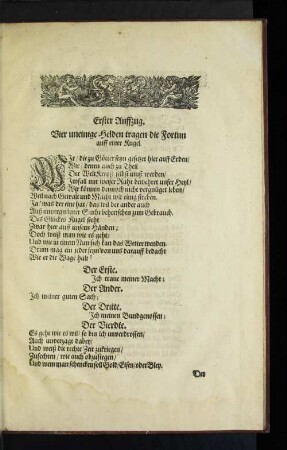 Erster Auffzug.
Vier uneinige Helden tragen die Fortun
auff einer Kugel.
WIr/ die zu Götter seyn gesetzet hier auff Erden/
Wir/ denen auch zu Theil
Der Welt Kreyß selbst muß werden/
Wir können dennoch nicht vergnüget leben/
Weil nach Gewalt und Macht wir einig streben.
Ja/ was der eine hat/ das wil der ander auch
Des Glückes Kugel steht
Zwar hier auff unsern Händen;
Doch weiß man wie es geht/
Und wie in einem Nun sich kan das Wetter wenden.
Drum mag ein jeder seyn von uns darauff bedacht
Wie er die Wage halt!
Der Erste.
Ich traue meiner Macht;
Der Ander.
Ich meiner guten Sach;
Der Dritte.
Ich meinen Bundgenossen;
Der Vierdte.
Es geht wie es wil/ so bin ich unverdrossen/
Auch unverzagt dabey/
Und weiß die rechte Zeit zu kriegen/
Zusehen/ wie auch obzusiegen/
Und wem man schencken soll Gold/ Eisen/ oder Bley.
Der